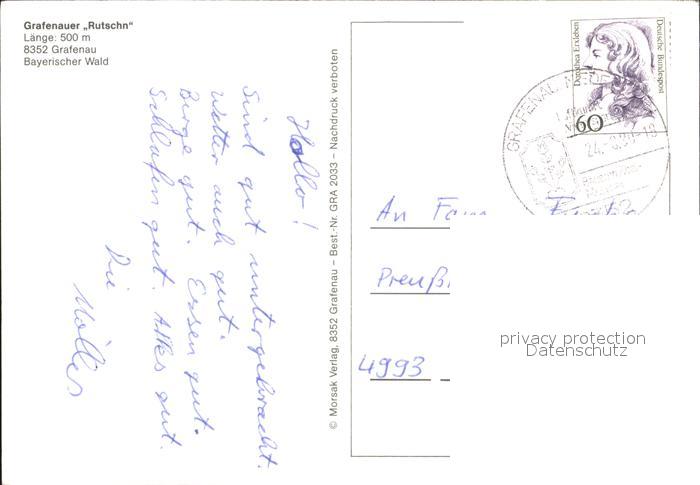 Grafenauer „Rutschn“
Länge: 500 m
8352 Grafenau
Bayerischer Wald
Hallo!
Sind gut untergebracht.
Wetter auch gut.
Berge gut. Essen gut.
Schlafen gut. Alles gut.
Die
Möllers
© Morsak Verlag, 8352 Grafenau – Best.-Nr. GRA 2033 – Nachdruck verboten
Dorothea Erxleben
Deutsche Bundespost
60
GRAFENAU
An Fam
Preußi
4993
privacy protection
Datenschutz